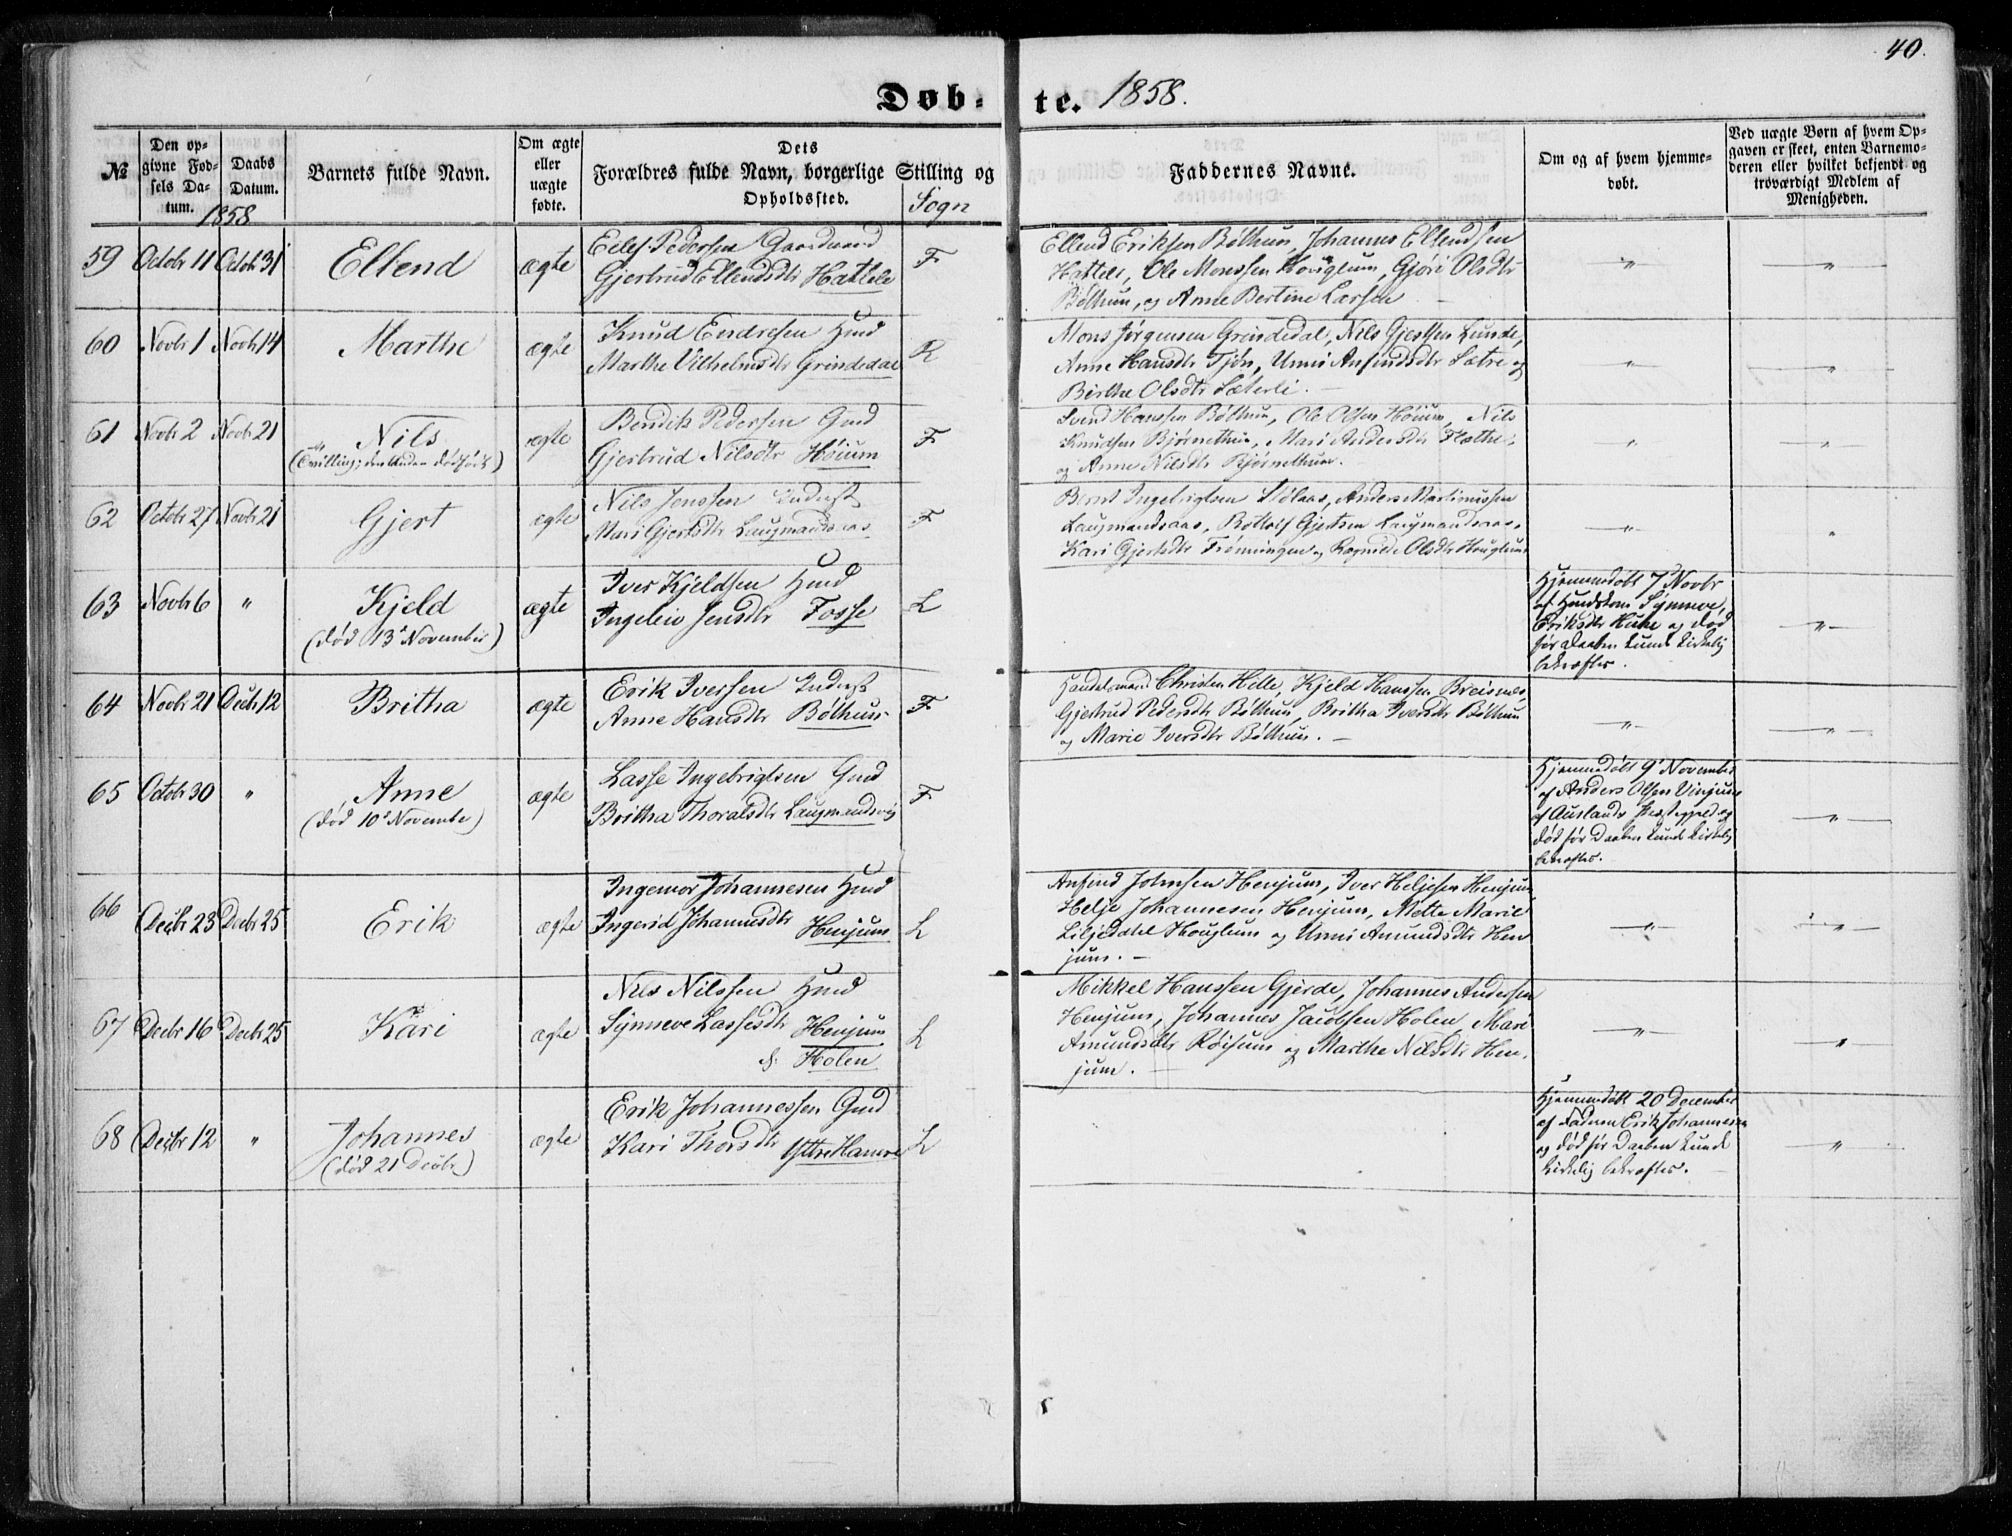 40.
Døb-te. 1858.
№
Den opgivne Fødsels Datum.
Daabs Datum.
1858
Barnets fulde Navn.
Om ægte eller uægte fødte.
Dets Forældres fulde Navn, borgerlige Stilling og Opholdssted.
Sogn
Faddernes Navne.
Om og af hvem hjemmedøbt.
Ved uægte Børn af hvem Opgaven er skeet, enten Barnemoderen eller hvilket bekjendt og troværdigt Medlem af Menigheden.
59 Octobr 11 Octobr 31 Ellend ægte
Eilef Pedersen Gaardmand
Gjertrud Ellendsdtr Hattele F
Ellend Eriksen Bøthun, Johannes Ellendsen
Hattele, Ole Monssen Hovglum, Gjøri Olsdtr
Bøthun, og Anne Bertine Larsen
" "
60 Novbr 1 Novbr 14 Marthe ægte
Knud Endresen Hmd
Marthe Vilhelmsdtr Grindedal R
Mons Jørgensen Grindedal, Nils Gjertsen Lunde,
Anne Hansdtr Tjøn, Unni Anfindsdtr Sætre og
Birthe Olsdtr Sæterli.
" "
61 Novbr 2 Novbr 21 Nils ægte
(Tvilling; den Anden dødfødt)
Bendik Pedersen Gmd
Gjertrud Nilsdtr Høium F
Svend Hanssen Bøthun, Ole Olsen Høium, Nils
Knudsen Bjørnethun, Mari Andersdtr Flæthe,
og Anne Nilsdtr Bjørnethun.
" "
62 Octobr 27 Novbr 21 Gjert ægte
Nils Jenssen Inderst
Mari Gjertsdtr Laugmandsaas F
Bernt Ingebrigtsen Stølaas, Anders Martinussen
Laugmandsaas, Botlvif Gjertsen Laugmandsaas,
Kari Gjertsdtr Frønningen og Ragnilde Olsdtr Houglum
" "
63 Novbr 6 " Kjeld ægte
(død 13de November)
Iver Kjeldsen Hmd
Ingeleiv Jensdtr Fosse L
Hjemmedøbt 7de Novbr
af Husmdskone Synneve
Eriksdtr Huke og død
før Daaben kunde kirkelig
bekræftes.
"
64 Novbr 21 Decbr 12 Britha ægte
Erik Iversen Inderst
Anne Hansdtr Bøthun F
Handelsmand Christen Hille, Kjeld Hanssen Breisnes
Gjertrud Pedersdtr Bøthun, Britha Iversdtr Bøthun
og Marie Iversdtr Bøthun.
" "
65 Octobr 30 " Anne ægte
(død 10de November)
Lasse Ingebrigtsen Gmd
Britha Thoralsdtr Laugmandsvig F
Hjemmedøbt 9de November
af Anders Olsen Vinjum
af Auslands Præstegjeld og
død før Daaben kunde kirkelig
bekræftes.
"
66 Decbr 23 Decbr 25 Erik ægte
Ingemor Johannesen Hmd
Ingerid Johannesdtr Henjum L
Anfind Johnsen Henjum, Iver Heljesen Henjum
Helje Johannesen Henjum, Mette Marie
Liljedahl Houglum og Unni Amundsdtr Hen
jum.
" "
67 Decbr 16 Decbr 25 Kari ægte
Nils Nilssen Hmd
Synneve Lassesdtr Henjum
f. Holen L
Mikkel Hanssen Gjerde, Johannes Andersen
Henjum, Johannes Jacobsen Holen, Mari
Amundsdtr Røisum og Marthe Nilsdtr Hen
jum.
" "
68 Decbr 12 " Johannes ægte
(død 21 Decbr)
Erik Johannessen Gmd
Kari Thorsdtr Yttre Hamre L
Hjemmedøbt 20 December
af Faderen Erik Johannesen
og død før Daaben kunde
kirkelig bekræftes.
"